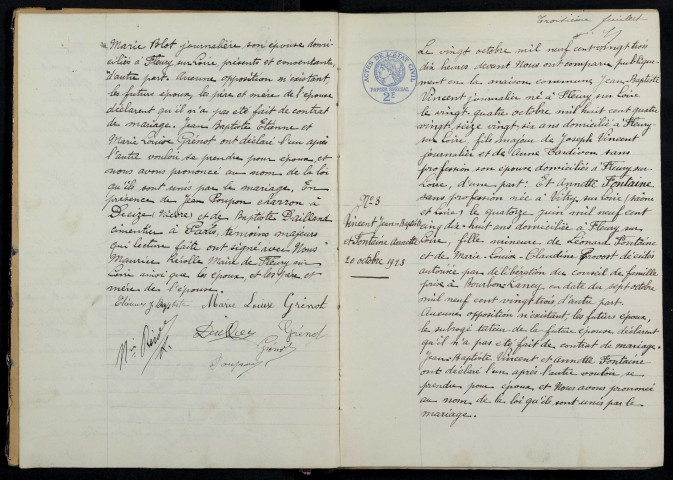 Marie Polot journalière son épouse domi-
ciliés à Fleury sur Loire, présents et consentants,
d'autre part. Aucune opposition n'existant,
les futurs époux, les père et mère de l'épouse
déclarent qu'il n'a pas été fait de contrat
de mariage. Jean Baptiste Etienne et
Marie Louise Grénot ont déclaré l'un après
l'autre vouloir se prendre pour époux, et
nous avons prononcé au nom de la loi
qu'ils sont unis par le mariage. En
présence de Jean Poupon charron à
Decize Nièvre, et de Baptiste Daillard
cimentier à Paris, témoins majeurs
qui lecture faite ont signé avec Nous
Maurice Maire de Fleury sur
Loire ainsi que les époux, et les père et
mère de l'épouse.
Etienne J. Baptiste Marie Louise Grénot
Grénot
Grénot
Poupon
Troisième feuillet
ACTES DE L'ETAT CIVIL
PAPIER SPECIAL
2F
Le vingt octobre mil neuf cent vingt trois
dix heures devant Nous ont comparu publique-
ment en la maison commune Jean-Baptiste
Vincent journalier né à Fleury sur Loire
le vingt-quatre octobre mil huit cent quatre
vingt seize vingt-six ans domicilié à Fleury
sur Loire, fils majeur de Joseph Vincent
journalier et de Anne Tardivon sans
profession son épouse domiciliés à Fleury sur
Loire, d'une part. Et Annette Fontaine
sans profession née à Vitry sur Loire (Saône
et Loire) le quatorze juin mil neuf cent
cinq dix-huit ans domiciliée à Fleury sur
Loire, fille mineure de Léonard Fontaine
et de Marie-Louise-Claudine Prevost décédés
autorisée par délibération du conseil de famille
prise à Bourbon-Lancy en date du sept octobre
mil neuf cent vingt trois d'autre part.
Aucune opposition n'existant, les futurs époux,
le subrogé tuteur de la future épouse déclarent
qu'il n'a pas été fait de contrat de mariage.
Jean-Baptiste Vincent et Annette Fontaine
ont déclaré l'un après l'autre vouloir se
prendre pour époux, et Nous avons prononcé
au nom de la loi qu'ils sont unis par le
mariage.
N° 3
Vincent Jean-Baptiste
et Fontaine Annette
20 octobre 1923